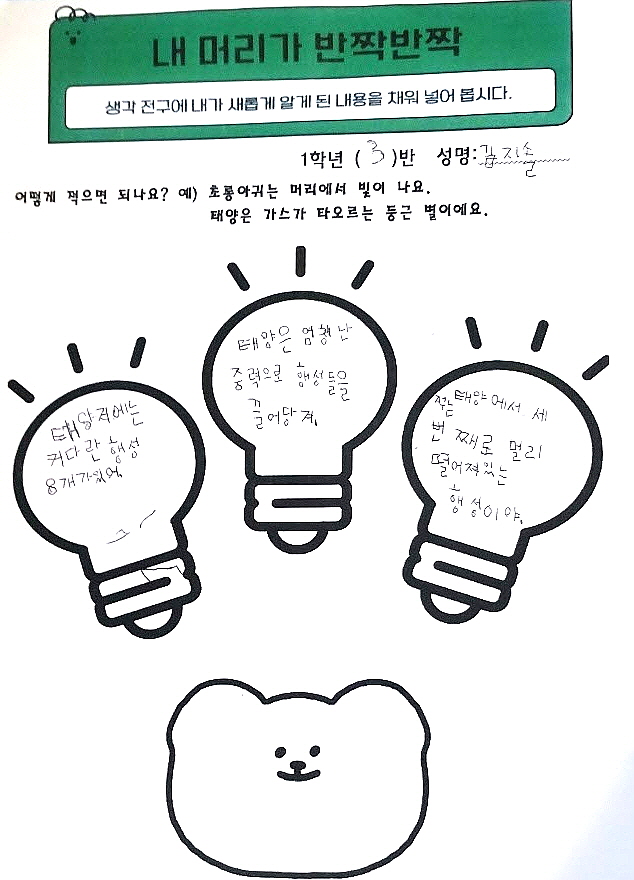 내 머리가 반짝반짝
생각 전구에 내가 새롭게 알게 된 내용을 채워 넣어 봅시다.
1학년 ( 3 )반 성명: 김지솔
어떻게 적으면 되나요? 예) 초롱아귀는 머리에서 빛이 나요.
태양은 가스가 타오르는 둥근 별이에요.
태양계에는
커다란 행성
8개가있어.
태양은 엄청난
중력으로 행성들을
끌어당겨.
태양에서 세
번째로 멀리
떨어져있는
행성이야.